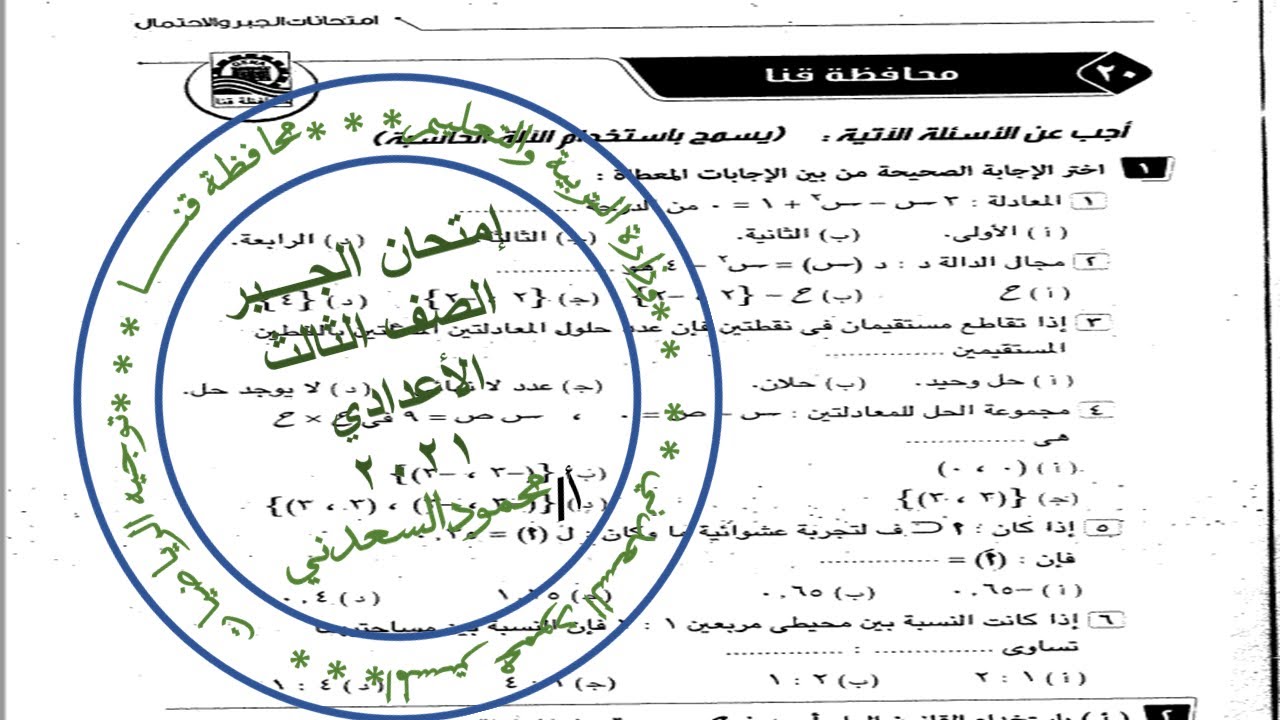 امتحانات الجبر والاحتمال
٢٠ محافظة قنا
محافظة قنا
أجب عن الأسئلة الآتية : (يسمح باستخدام الآلة الحاسبة)
١ اختر الإجابة الصحيحة من بين الإجابات المعطاة :
١ المعادلة : ٣ س − س٢ + ١ = ٠ من الدرجة ..............
(أ) الأولى. (ب) الثانية. (جـ) الثالثة. (د) الرابعة.
٢ مجال الدالة د : د (س) = س٢ − ٤ هو ..............
(أ) ح (ب) ح − {٢ ، −٢} (جـ) {٢ ، −٢} (د) {٤}
٣ إذا تقاطع مستقيمان فى نقطتين فإن عدد حلول المعادلتين
المستقيمين ..............
(أ) حل وحيد. (ب) حلان. (جـ) عدد لا نهائى (د) لا يوجد حل.
٤ مجموعة الحل للمعادلتين : س − ص = ٠ ، س ص = ٩ فى ح × ح
هى ..............
(أ) (٠ ، ٠) (ب) {(−٣ ، −٣)}
(جـ) {(٣ ، ٣)} (د) ، (٣ ، ٣)}
٥ إذا كان : ٢ ⊂ ف لتجربة عشوائية ما وكان : ل (٢) =
فإن : (٢) = ..............
(أ) −٠.٦٥ (ب) ٠.٦٥ (د) ٠.٤
٦ إذا كانت النسبة بين محيطى مربعين ١ : ٢ فإن النسبة بين مساحتيهما
تساوى .............. : ..............
(أ) ١ : ٢ (ب) ٢ : ١ (جـ) ١ : ٤ (د) ٤ : ١
٢
إمتحان الجـــبر
الصف الثالث
الأعدادي
٢٠٢١
أ/ محمود السعدني
وزارة التربية والتعليم * * * محافظة قنـــا * * * توجيه الرياضيات * * *